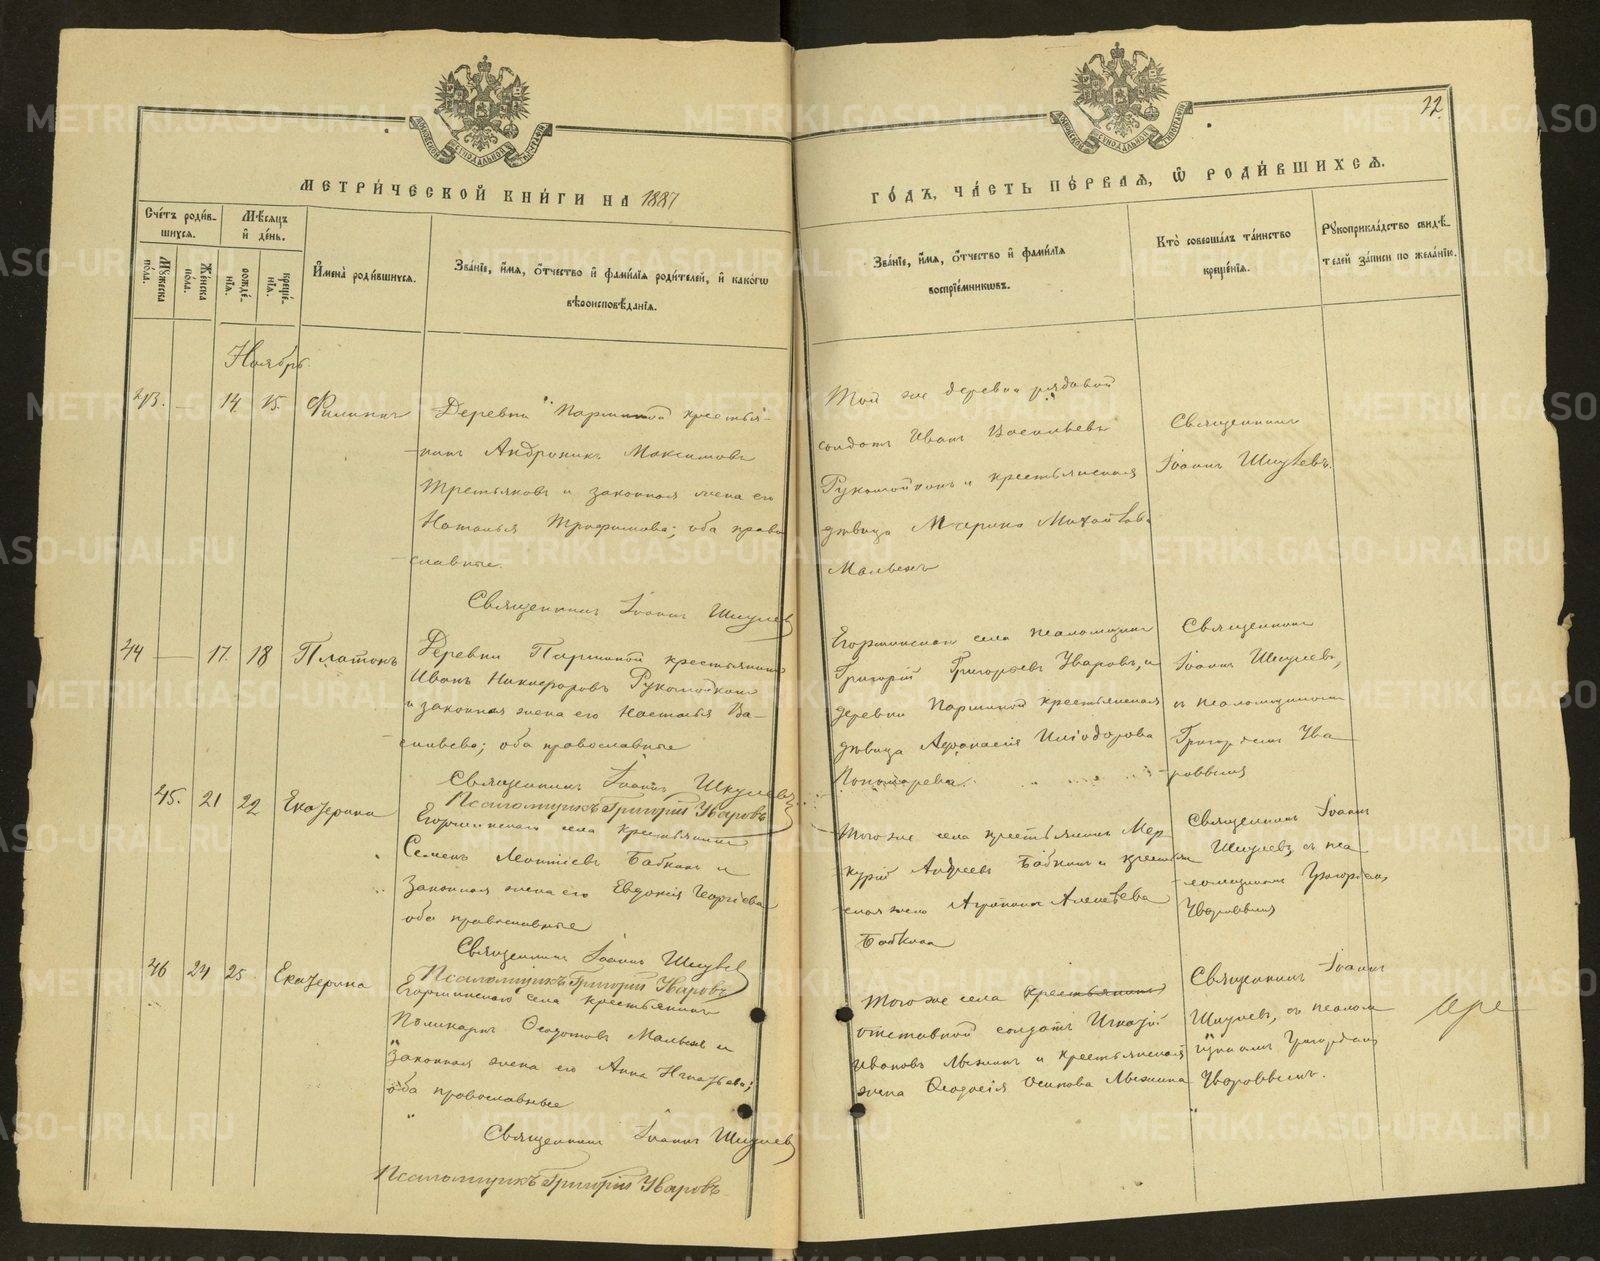 22.
МЕТРИ́ЧЕСКОЙ КНИ́ГИ НА 1887
ГО́ДЪ, ЧА́СТЬ ПЕ́РВАѦ, Ѽ РОДИ́ВШИХСѦ.
Сче́тъ роди́в-
шихсѧ.
Мꙋжеска по́ла.
Женска по́ла.
Мѣ́сѧцъ и҆ де́нь.
рожде́нїѧ.
креще́нїѧ.
И҆мена̀ роди́вшихсѧ.
Зва́нїе, и҆́мѧ, ѻ҆́тчество и҆ фами́лїѧ роди́телей, и҆ како́гѡ
вѣроисповѣ́данїѧ.
Зва́нїе, и҆́мѧ, ѻ҆́тчество и҆ фами́лїѧ
воспрїе́мникѡвъ.
Кто̀ соверша́лъ та́инство
креще́нїѧ.
Рꙋкоприкла́дство свидѣ́-
телей за́писи по жела́нїю.
Ноябрь.
43. — 14. 15. Филиппъ
Деревни Паршиной крестья-
нинъ Андроникъ Максимовъ
Третьяковъ и законная жена его
Наталья Трофимова; оба право
славные.
Священникъ Іоаннъ Шкулевъ
Той же деревни рядовой
солдатъ Иванъ Васильевъ
Рукомойкинъ и крестьянская
дѣвица Марина Михайлова
Малыхъ
Священникъ
Іоаннъ Шкулевъ.
44 — 17. 18 Платонъ
Деревни Паршиной крестьянинъ
Иванъ Никифоровъ Рукомойкинъ
и законная жена его Наталья Ва-
сильева; оба православные
Священникъ Іоаннъ Шкулевъ
Псаломщикъ Григорій Уваровъ
Егоршинскаго села псаломщикъ
Григорій Григорьевъ Уваровъ, и
деревни Паршиной крестьянская
дѣвица Афанасія Иліодорова
Пономарева.
Священникъ
Іоаннъ Шкулевъ,
съ псаломщикомъ
Григоріемъ Ува
ровымъ
45. 21 22 Екатерина
Егоршинскаго села крестьянинъ
Семенъ Леонтіевъ Бабкинъ и
законная жена его Евдокія Георгіева
оба православные
Священникъ Іоаннъ Шкулевъ
Псаломщикъ Григорій Уваровъ
Того же села крестьянинъ Мер
курій Андреевъ Бабкинъ и крестьян
ская жена Агрипина Алексѣева
Бабкина
Священникъ Іоаннъ
Шкулевъ, съ пса
ломщикомъ Григоріемъ
Уваровымъ
46 24 25. Екатерина
Егоршинскаго села крестьянинъ
Поликарпъ Ѳедотовъ Малыхъ и
законная жена его Анна Игнатьева;
оба православные
Священникъ Іоаннъ Шкулевъ
Псаломщикъ Григорій Уваровъ
Того же села крестьянинъ
отставной солдатъ Игнатій
Ивановъ и крестьянская
жена Ѳеодосія Осипова
Священникъ Іоаннъ
Шкулевъ, съ псалом
щикомъ Григоріемъ
Уваровымъ.
METRIKI.GASO-URAL.RU